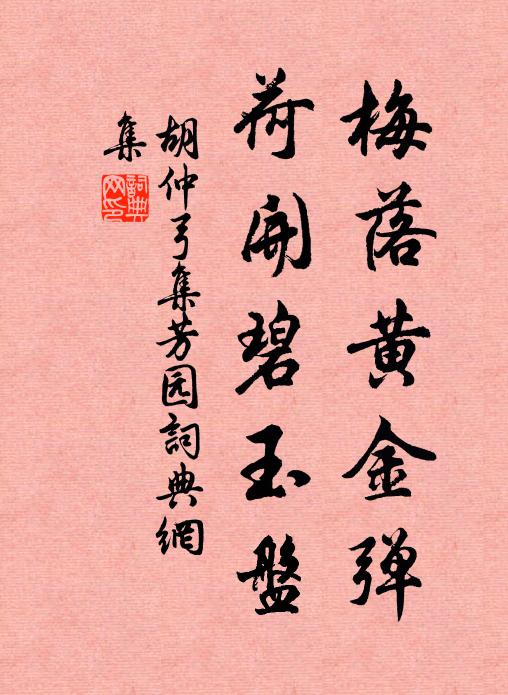 梅落黄金弹
荷開碧玉盤
胡仲弓集芳园詞典網
集
詞典网印